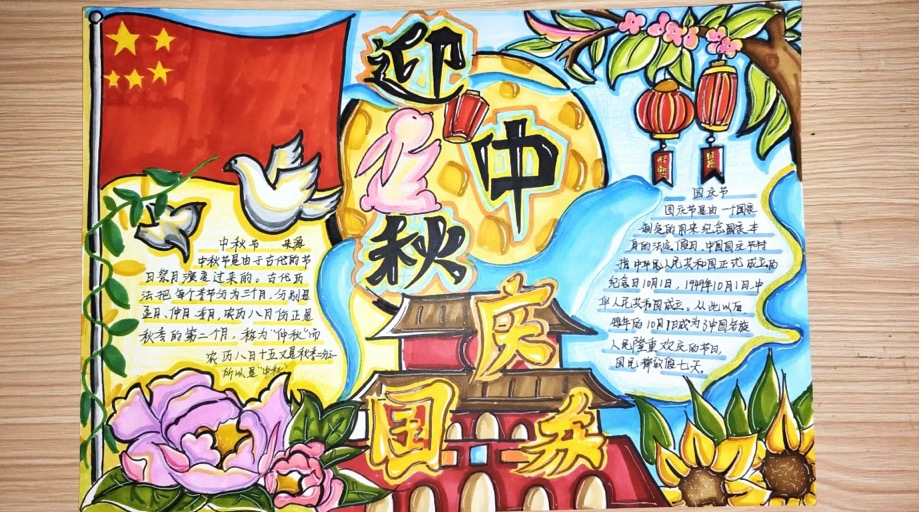 迎
中
秋
庆
国
中秋节 来源
中秋节是由于古代的节
日祭月演变过来的。古代历
法把每个季节分为三个月，分别是
孟月、仲月、季月，农历八月份正是
秋季的第二个月，称为"仲秋"而
农历八月十五又是秋季之
所以是"中秋"
国庆节
国庆节是由一个国家
制定的用来纪念国家本
身的法定假日，中国国庆节特
指中华人民共和国正式成立的
纪念日10月1日，1949年10月1日，中
华人民共和国成立。从此以后
每年的10月1日成为了中国各族
人民隆重欢庆的节日。
国家释放假七天。